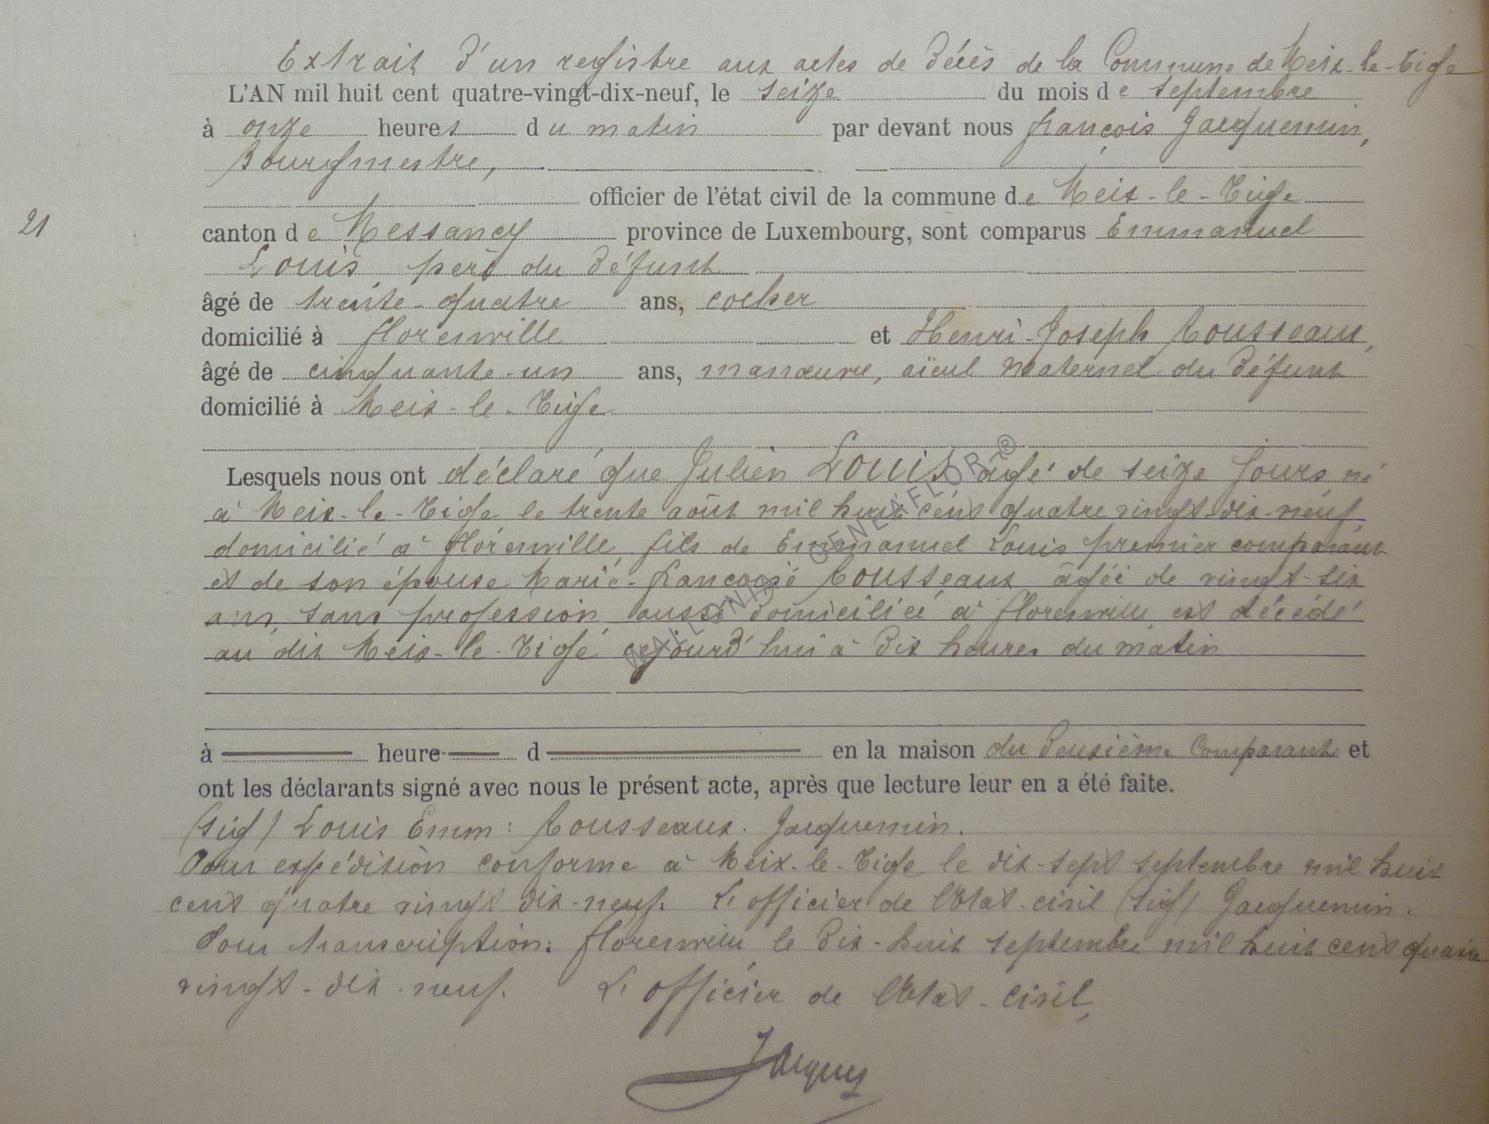 Extrait d'un registre aux actes de décès de la Commune de Meix-le-Tige
L'AN mil huit cent quatre-vingt-dix-neuf, le seize du mois de septembre
à onze heures du matin par devant nous françois Jacquemin,
Bourgmestre,
officier de l'état civil de la commune de Meix-le-Tige
21
canton de Messancy province de Luxembourg, sont comparus Emmanuel
Louis, père du défunt
âgé de trente-quatre ans, cocher
domicilié à florenville et Henri-Joseph Rousseaux,
âgé de cinquante-un ans, manœuvre, aïeul maternel du défunt
domicilié à Meix-le-Tige
Lesquels nous ont déclaré que Julien Louis âgé de seize jours né
à Meix-le-Tige le trente août mil huit cent quatre vingt-dix-neuf,
domicilié à florenville, fils de Emmanuel Louis premier comparant
et de son épouse Marie-françoise Rousseaux âgée de vingt-six
ans, sans profession, aussi domiciliée à florenville est décédé
au dit Meix-le-Tige, cejourd'hui à dix heures du matin
à heure d en la maison du deuxième Comparant et
ont les déclarants signé avec nous le présent acte, après que lecture leur en a été faite.
(sig) Louis Emm: Rousseaux. Jacquemin.
Pour expédition conforme à Meix-le-Tige le dix-sept septembre mil huit
cent quatre vingt dix-neuf. L'officier de l'Etat-civil (sig) Jacquemin.
Pour transcription: florenville, le dix-huit septembre mil huit cent quatre
vingt-dix-neuf. L'officier de l'Etat-civil,
WALLONIA GENEAFLOR ®